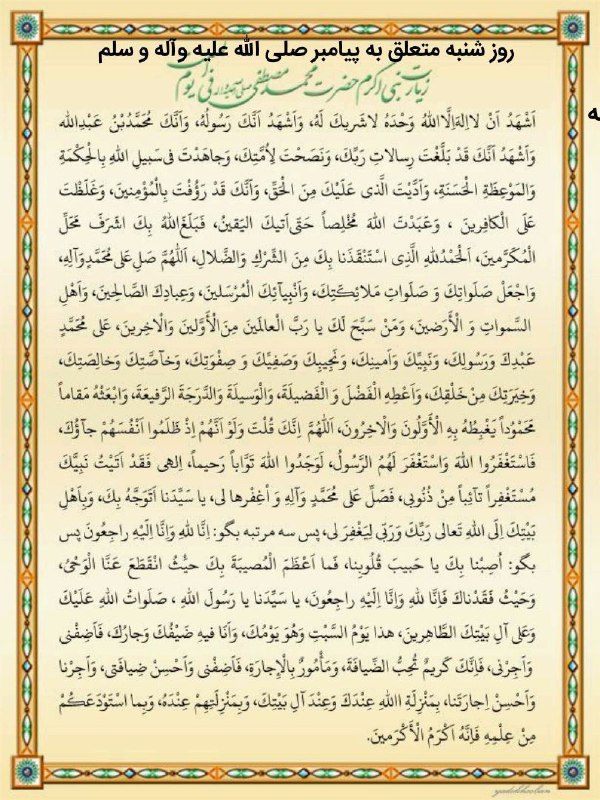 روز شنبه متعلق به پیامبر صلی الله علیه وآله و سلم
زیارت نبی اکرم حضرت محمد مصطفی فی یوم
اَشْهَدُ اَنْ لااِلهَ اِلَّا اللهُ وَحْدَهُ لاشَریكَ لَهُ، وَاَشْهَدُ اَنَّكَ رَسُولُهُ، وَاَنَّكَ مُحَمَّدُبْنُ عَبْدِالله
وَاَشْهَدُ اَنَّكَ قَدْ بَلَّغْتَ رِسالاتِ رَبِّكَ، وَنَصَحْتَ لِاُمَّتِكَ، وَجاهَدْتَ فی سَبیلِ اللهِ بِالْحِكْمَةِ
وَالمَوْعِظَةِ الْحَسَنَةِ، وَاَدَّيْتَ الَّذی عَلَيْكَ مِنَ الْحَقِّ، وَاَنَّكَ قَدْ رَؤُفْتَ بِالْمُؤْمِنینَ، وَغَلَظْتَ
عَلَی الْكافِرینَ ، وَعَبَدْتَ اللهَ مُخْلِصاً حَتّی اَتيكَ اليَقینُ، فَبَلَغَ اللهُ بِكَ اشَرَفَ مَحَلِّ
الْمُكَرَّمینَ، اَلْحَمْدُ لِلهِ الَّذِی اسْتَنْقَذَنا بِكَ مِنَ الشِّرْكِ وَالضَّلالِ، اَللّهُمَّ صَلِ عَلی مُحَمَّدٍ وَآلِهِ،
وَاجْعَلْ صَلَواتِكَ وَ صَلَواتِ مَلائِكَتِكَ، وَاَنْبِيآئِكَ الْمُرْسَلینَ، وَعِبادِكَ الصّالِحینَ، وَاَهْلِ
السَّمواتِ وَ الْأَرَضینَ، وَمَنْ سَبَّحَ لَكَ یا رَبَّ الْعالَمینَ مِنَ الْأَوَّلینَ وَالْاخِرینَ، عَلی مُحَمَّدٍ
عَبْدِكَ وَرَسُولِكَ، وَنَبِيِّكَ وَاَمینِكَ، وَنَجیبِكَ وَصَفِيِّكَ وَ صِفْوَتِكَ، وَخآصَّتِكَ وَخالِصَتِكَ،
وَخِيَرَتِكَ مِنْ خَلْقِكَ، وَاَعْطِهِ الْفَضْلَ وَ الْفَضیلَةَ، وَالْوَسیلَةَ وَالدَّرَجَةَ الرَّفیعَةَ، وَابْعَثْهُ مَقاماً
مَحْمُوْداً يَغْبِطُهُ بِهِ الْأَوَّلُونَ وَالْاخِرُونَ، اَللّهُمَّ اِنَّكَ قُلْتَ وَلَوْ اَنَّهُمْ اِذْ ظَلَمُوا اَنْفُسَهُمْ جآؤُكَ،
فَاسْتَغْفَرُوا اللهَ وَاسْتَغْفَرَ لَهُمُ الرَّسُولُ، لَوَجَدُوا اللهَ تَوّاباً رَحیماً، اِلهی فَقَدْ اَتَيْتُ نَبِيَّكَ
مُسْتَغْفِراً تآئِباً مِنْ ذُنُوبی، فَصَلِّ عَلی مُحَمَّدٍ وَآلِهِ وَ اغْفِرْها لی، یا سَيِّدَنا اَتَوَجَّهُ بِكَ، وَبِاَهْلِ
بَيْتِكَ اِلَی اللهِ تَعالی رَبِّكَ وَرَبّی لِيَغْفِرَ لی، پس سه مرتبه بگو: اِنّا لِلهِ وَاِنّا اِلَيْهِ راجِعُونَ پس
بگو: اُصِبْنا بِكَ یا حَبیبَ قُلُوبِنا، فَما اَعْظَمَ الْمُصیبَةَ بِكَ حَيْثُ انْقَطَعَ عَنَّا الْوَحْیُ،
وَحَيْثُ فَقَدْناكَ فَاِنّا لِلهِ وَاِنّا اِلَيْهِ راجِعُونَ، یا سَيِّدَنا یا رَسُولَ اللهِ ، صَلَواتُ اللهِ عَلَيْكَ
وَعَلی آلِ بَيْتِكَ الطّاهِرینَ، هذا يَوْمُ السَّبْتِ وَهُوَ يَوْمُكَ، وَاَنَا فیهِ ضَيْفُكَ وَجارُكَ، فَاَضِفْنی
وَاَجِرْنی، فَاِنَّكَ كَریمٌ تُحِبُّ الضِّيافَةَ، وَمَأْمُورٌ بِالْإِجارَةِ، فَاَضِفْنی وَاَحْسِنْ ضِيافَتی، وَاَجِرْنا
وَاَحْسِنْ اِجارَتَنا، بِمَنْزِلَةِ اللهِ عِنْدَكَ وَعِنْدَ آلِ بَيْتِكَ، وَبِمَنْزِلَتِهِمْ عِنْدَهُ، وَبِما اسْتَوْدَعَكُمْ
مِنْ عِلْمِهِ فَاِنَّهُ اَكْرَمُ الْأَكْرَمینَ.